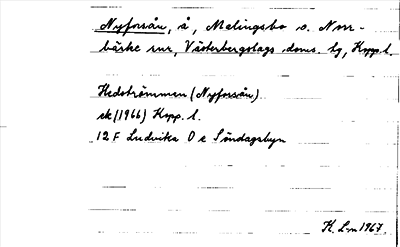 Nyforsån, å, Malingsbo o. Norr-
bärke snr, Västerbergslags doms. tg, Kopp. l.
Hedströmmen (Nyforsån)
ek (1966) Kopp. l.
12 F Ludvika 0 c Söndagsbyn
K. Lm 1967.